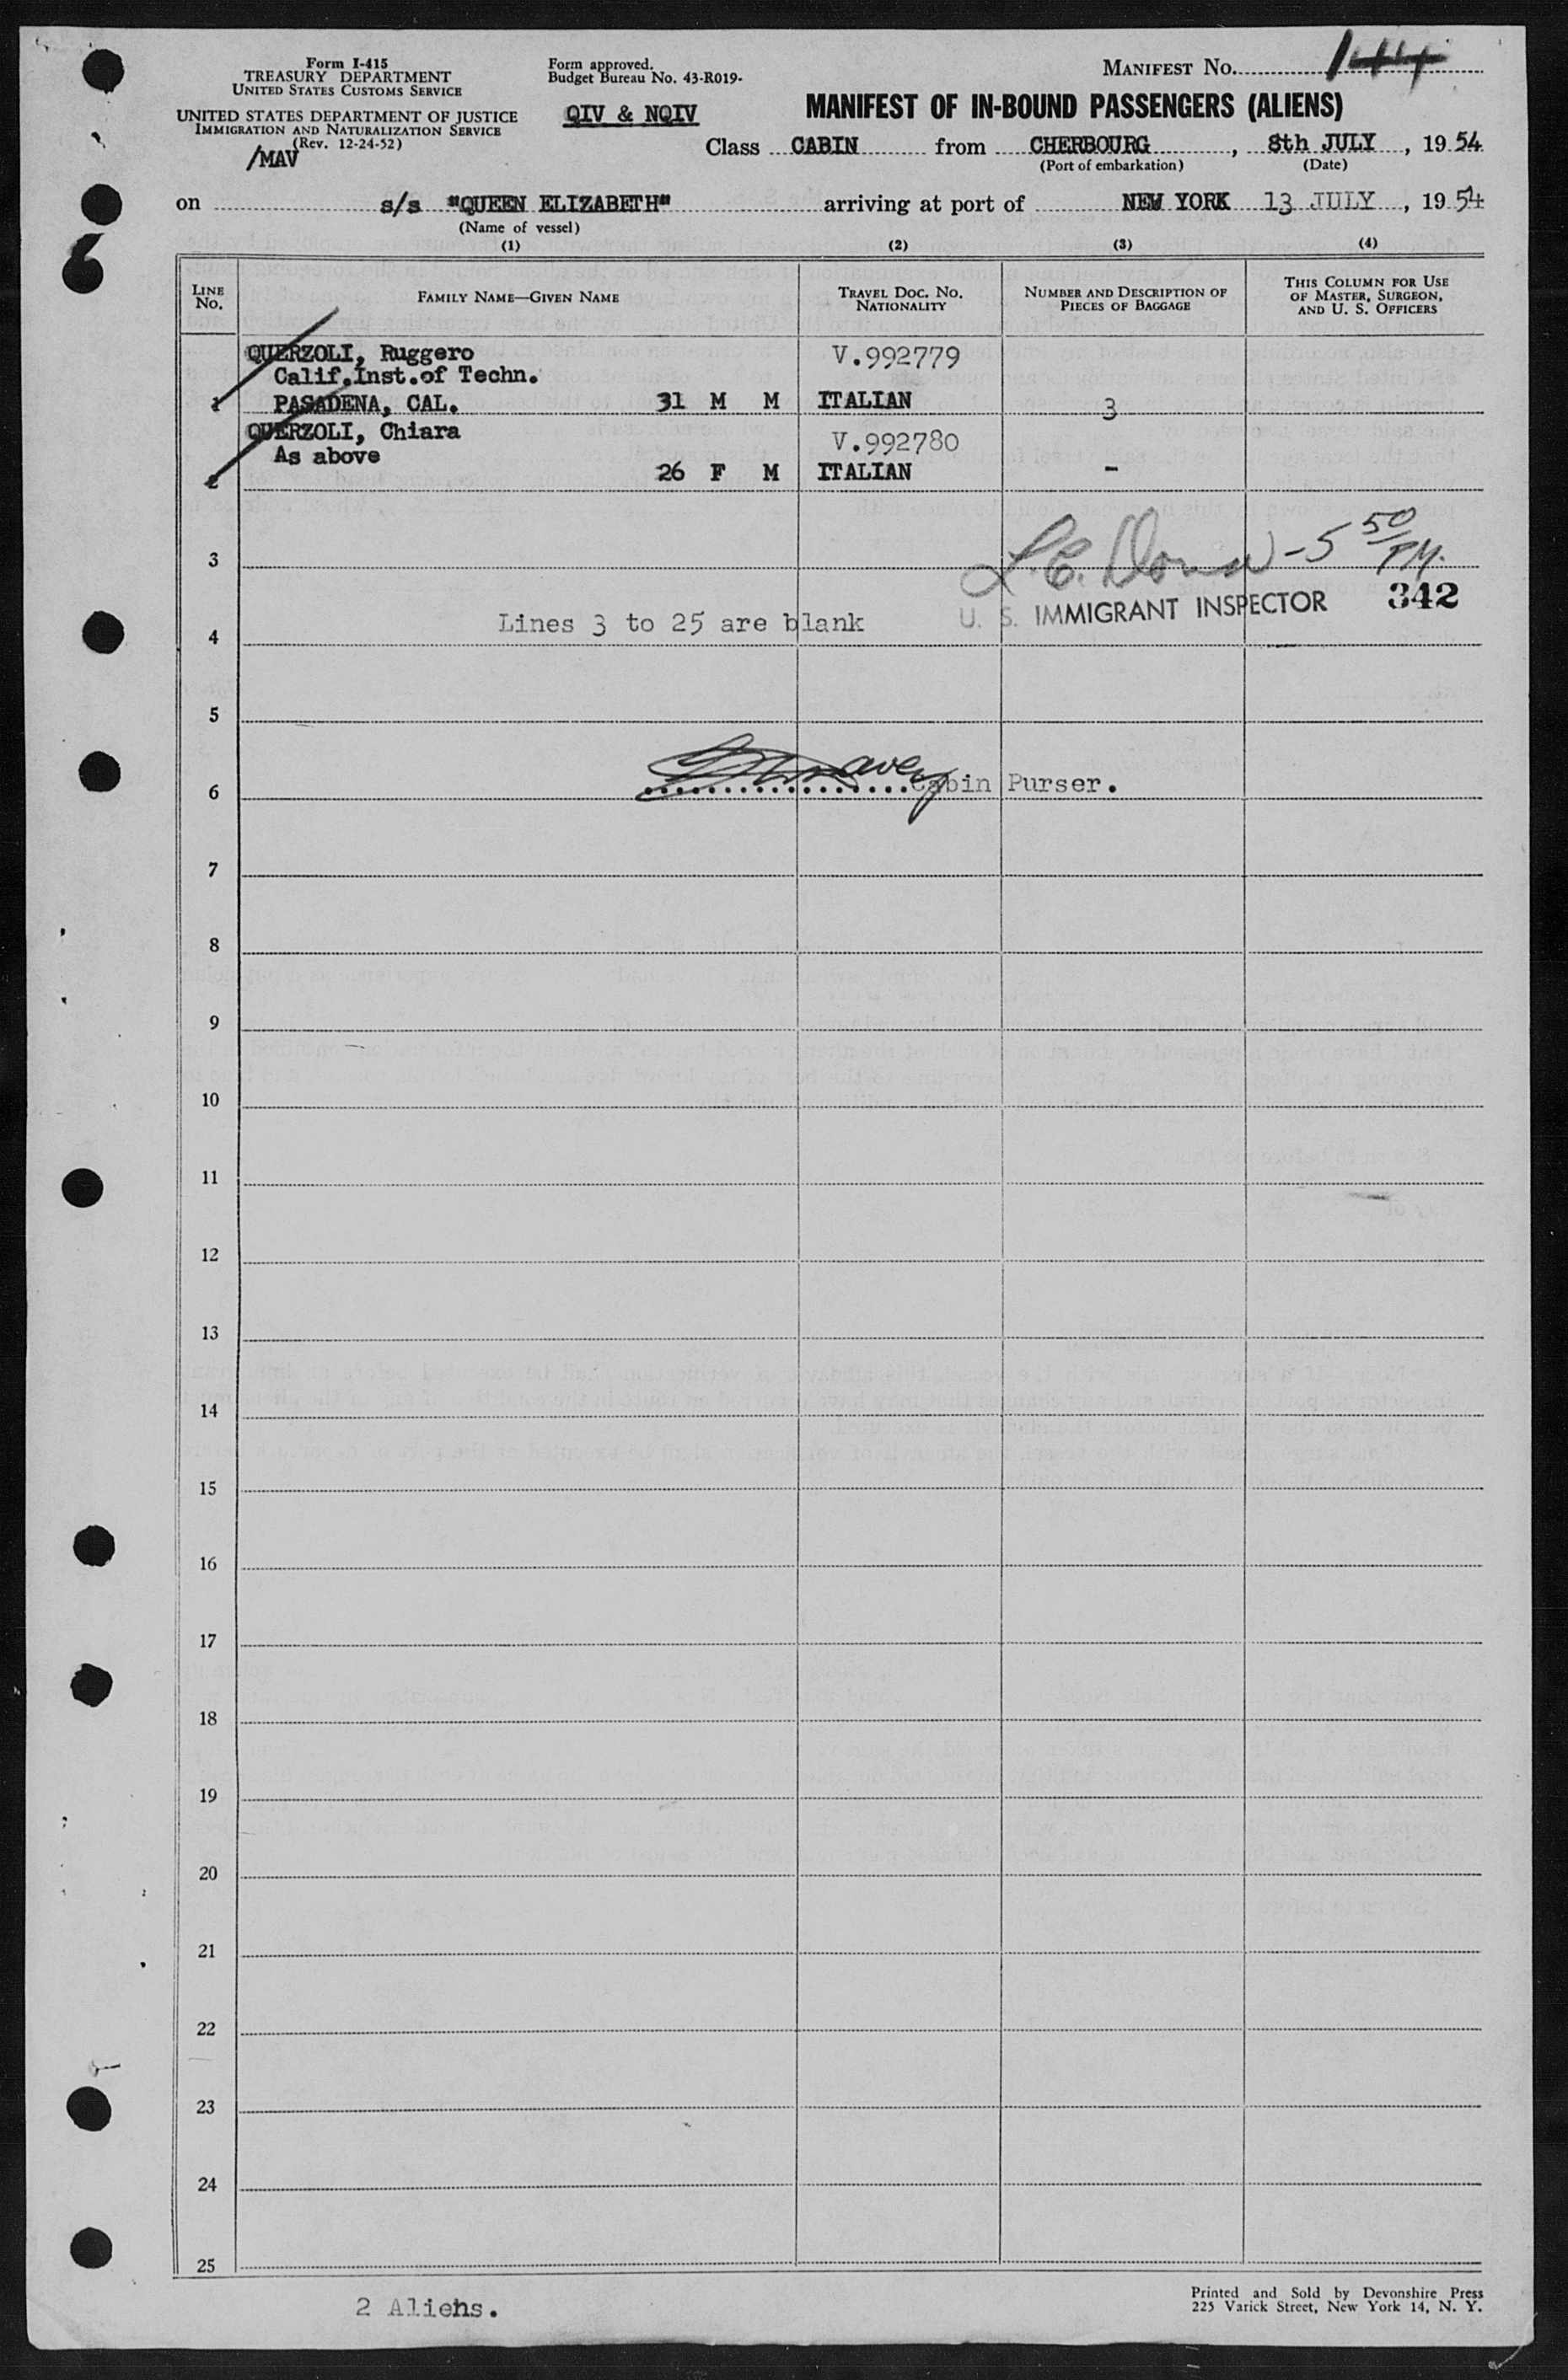 Form I-415
TREASURY DEPARTMENT
UNITED STATES CUSTOMS SERVICE
UNITED STATES DEPARTMENT OF JUSTICE
IMMIGRATION AND NATURALIZATION SERVICE
(Rev. 12-24-52)
/MAV
Form approved.
Budget Bureau No. 43-R019-
QIV & NQIV
MANIFEST NO.
MANIFEST OF IN-BOUND PASSENGERS (ALIENS)
Class CABIN from CHERBOURG, 8th JULY, 1954
(Port of embarkation) (Date)
on s/s "QUEEN ELIZABETH" arriving at port of NEW YORK 13 JULY, 1954
(Name of vessel)
(1) (2) (3) (4)
LINE NO.
FAMILY NAME—GIVEN NAME
TRAVEL DOC. NO. NATIONALITY
NUMBER AND DESCRIPTION OF PIECES OF BAGGAGE
THIS COLUMN FOR USE OF MASTER, SURGEON, AND U. S. OFFICERS
QUERZOLI, Ruggero V.992779
Calif.Inst.of Techn.
1 PASADENA, CAL. 31 M M ITALIAN 3
QUERZOLI, Chiara V.992780
As above
2 26 F M ITALIAN -
3
5 50 PM.
U. S. IMMIGRANT INSPECTOR 342
Lines 3 to 25 are blank
4
5
6 Cabin Purser.
7
8
9
10
11
12
13
14
15
16
17
18
19
20
21
22
23
24
25
2 Aliens.
Printed and Sold by Devonshire Press
225 Varick Street, New York 14, N. Y.